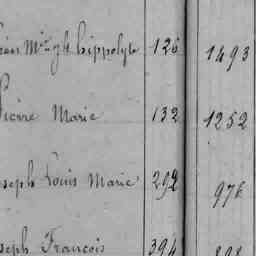 Hippolyte 126 1493
Pierre Marie 132 1252
Joseph Louis Marie 292 976
Joseph François 394